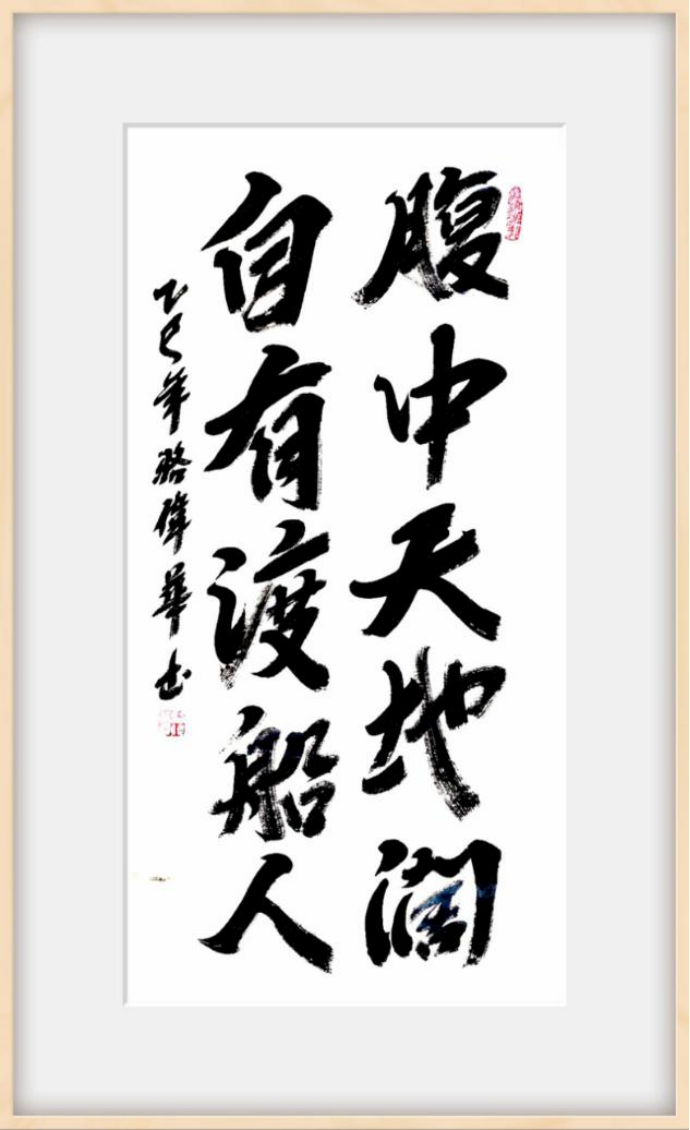 腹中天地闊
自有渡船人
乙巳年駱偉華书